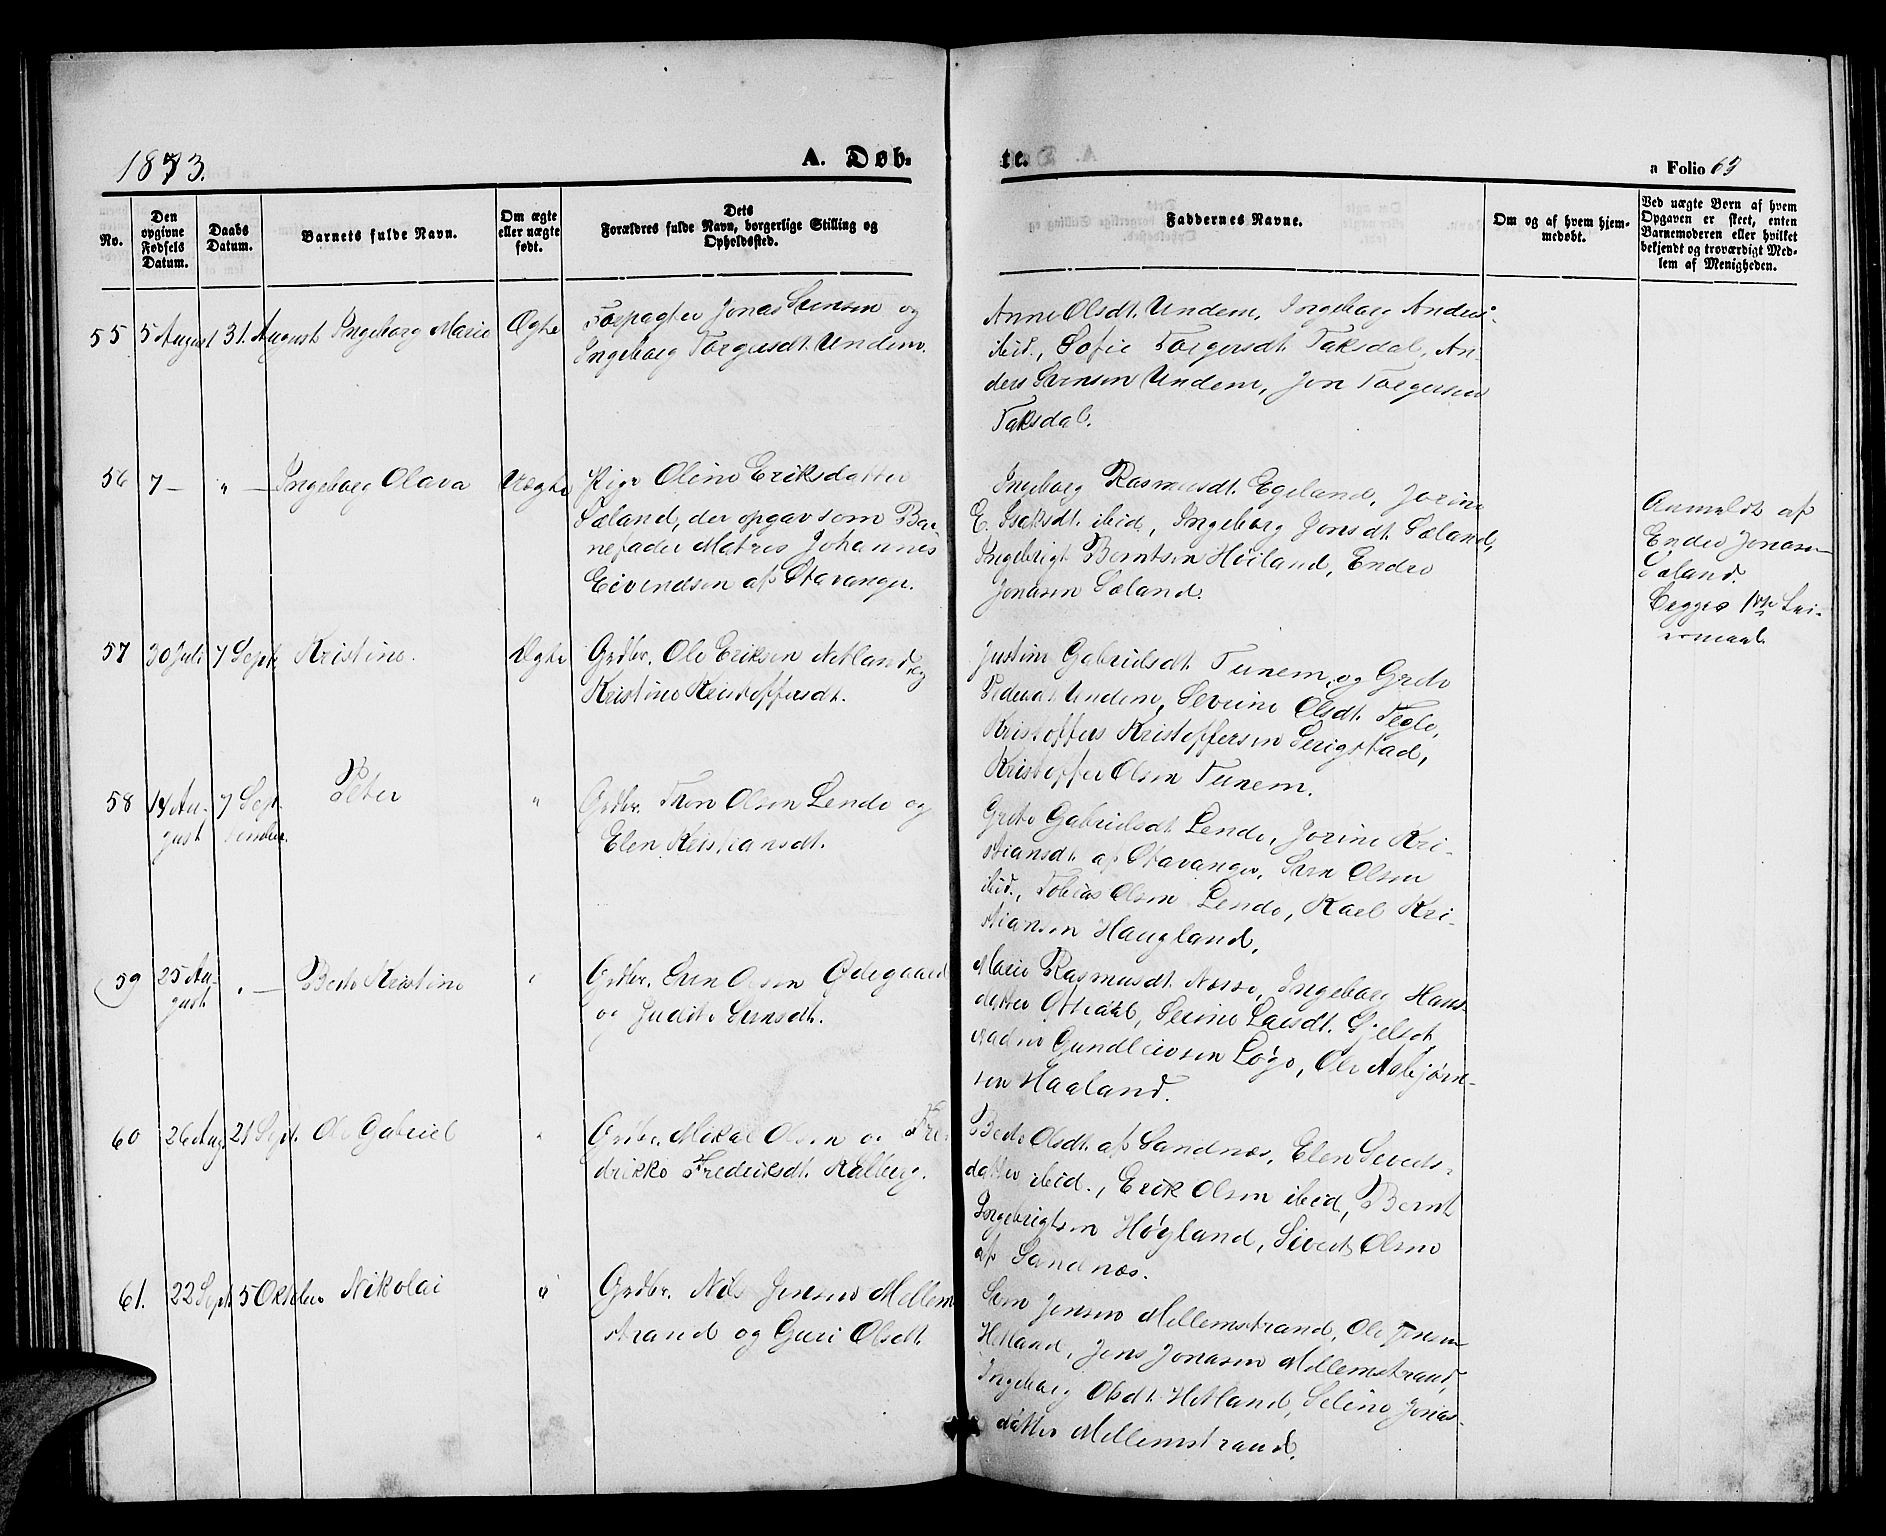 1873.
A. Døb-
te.
a Folio 69
No.
Den
opgivne
Fødsels
Datum.
Daabs
Datum.
Barnets fulde Navn.
Om ægte
eller uægte
født.
Dets
Forældres fulde Navn, borgerlige Stilling og
Opholdssted.
Faddernes Navne.
Om og af hvem hjem-
medøbt.
Ved uægte Børn af hvem
Opgaven er skeet, enten
Barnemoderen eller hvilket
bekjendt og troværdigt Med-
lem af Menigheden.
55 5 August 31. August Ingeborg Marie Ægte
Forpagter Jonas Svensen og
Ingeborg Torgersdt. Undem.
Anne Olsdt. Undem, Ingeborg Anders-
ibid., Sofie Torgersdt. Taksdal, An-
ders Svensen Undem, Jon Torgersen
Taksdal.
56 7 — " — Ingeborg Olava Uægte
Pige Oline Eriksdatter
Sæland, der opgav som Bar-
nefader Matros Johannes
Eivendsen af Stavanger.
Ingeborg Rasmusdt. Egeland, Jorine
E. Isaksdt. ibid, Ingeborg Jonsdt. Sæland,
Ingebrigt Berntsen Høiland, Endre
Jonasen Sæland.
Anmeldt af
Endre Jonasen
Sæland.
Begges 1ste Lei-
ermaal.
57 30 Juli 7 Sept. Kristine. Ægte
Grdbr. Ole Eriksen Netland og
Kristine Kristoffersdt.
Justine Gabrielsdt. Tunem, og Grete
Pedersdt Undem, Severine Olsdt. Tegle,
Kristoffers Kristoffersen Serigstad,
Kristoffer Olsen Tunem.
58 14 Au-
gust
7 Sep-
tember.
Peter "
Grdbr. Tron Olsen Lende og
Elen Kristiansdt.
Grete Gabrielsdt. Lende, Jorine Kri-
stiansdt. af Stavanger, Sven Olsen
ibid., Tobias Olsen Lende, Karl Kri-
stiansen Haugland,
59 25 Au-
gust
" —
Berte Kristine "
Grdbr. Sven Olsen Ødegaard
og Judite Svensdt.
Marie Rasmusdt. Nærø, Ingeborg Hans-
datter Ottedal, Serine Larsdt. Gjelset,
Gundleivsen Løge, Ole Asbjørn-
sen Haaland.
60 26 Aug. 21 Sept. Ole Gabriel "
Grdbr. Mikal Olsen og Fre-
drikke Frederiksdt. Kalberg.
Berte Olsdt. af Sandnæs, Elen Siverts-
datter ibid., Erik Olsen ibid, Bernt
Ingebrigtsen Høyland, Sivert Olsen
af Sandnæs.
61. 22 Sept. 5 Oktober Nikolai "
Grdbr. Nils Jensen Mellem-
strand og Guri Olsdt.
Sven Jensen Mellemstrand, Ole Jensen
Hetland, Jens Jonasen Mellemstrand,
Ingeborg Olsdt. Hetland, Seline Jonas-
datter Mellemstrand.